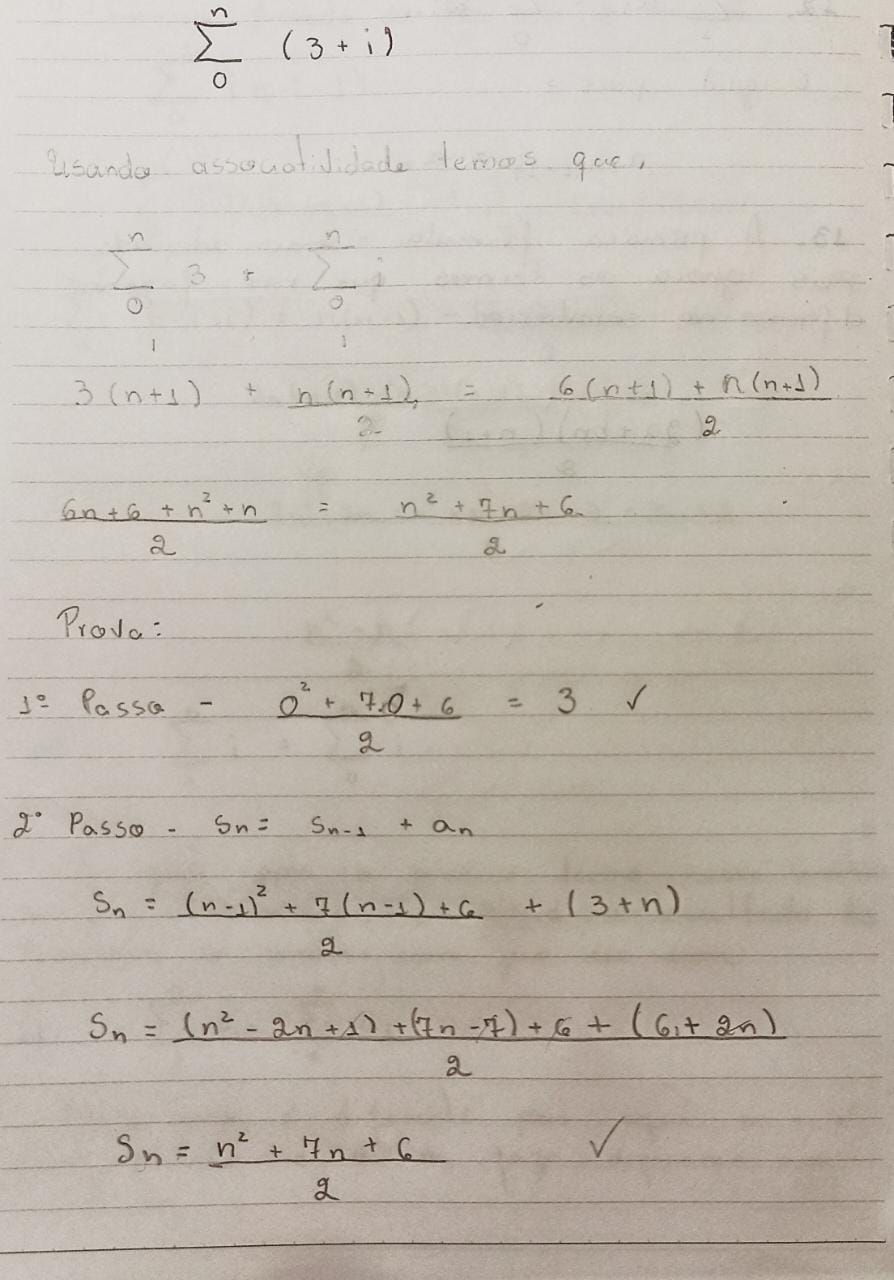 n
∑ (3 + i)
0
Usando associatividade temos que,
n n
∑ 3 + ∑ i
0 0
3(n+1) + n(n+1)/2 = (6(n+1) + n(n+1))/2
(6n+6+n²+n)/2 = (n²+7n+6)/2
Prova:
1º Passo - (0² + 7.0 + 6)/2 = 3 ✓
2º Passo - Sn = Sn-1 + an
Sn = ((n-1)² + 7(n-1) + 6)/2 + (3+n)
Sn = ((n² - 2n + 1) + (7n - 7) + 6 + (6 + 2n))/2
Sn = (n² + 7n + 6)/2 ✓